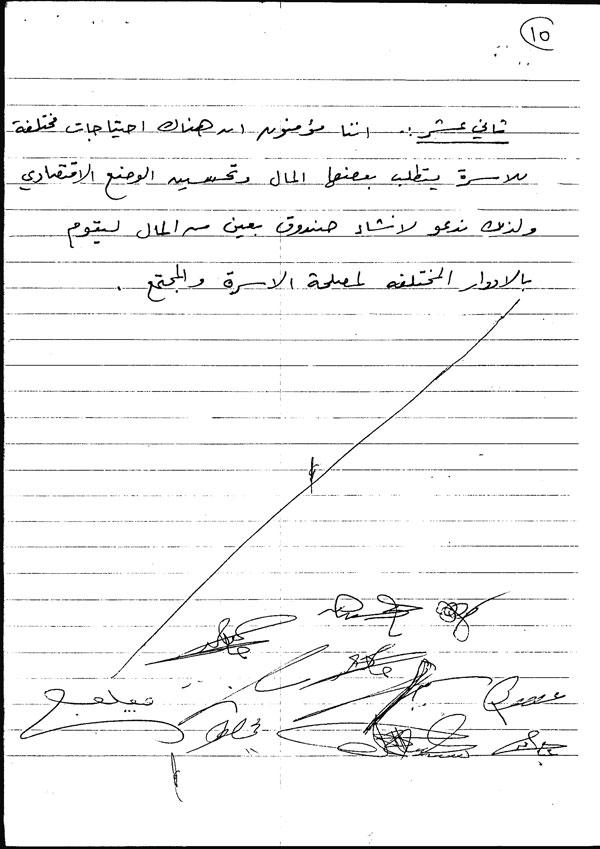 ١٥
ثاني عشر :. اننا مؤمنون ان هناك احتياجات مختلفة
للاسرة يتطلب بعضها المال وتحسين الوضع الاقتصادي
ولذلك ندعو لانشاء صندوق يعين من المال ليقوم
بالادوار المختلفه لمصلحة الاسرة والمجتمع .